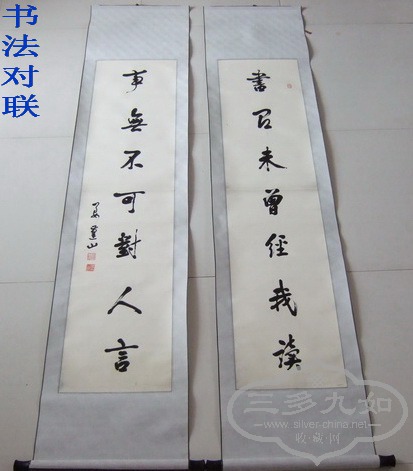 书法对联
書有未曾經我讀
事無不可對人言
三多九如
www.silver-china.net
收·藏·网